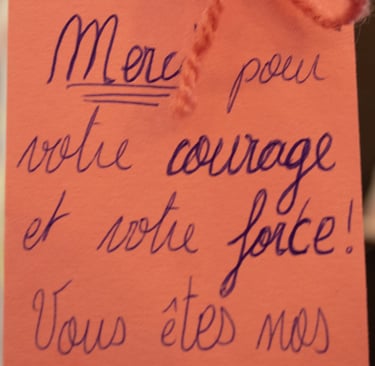 Merci pour
votre courage
et votre force!
Vous êtes nos